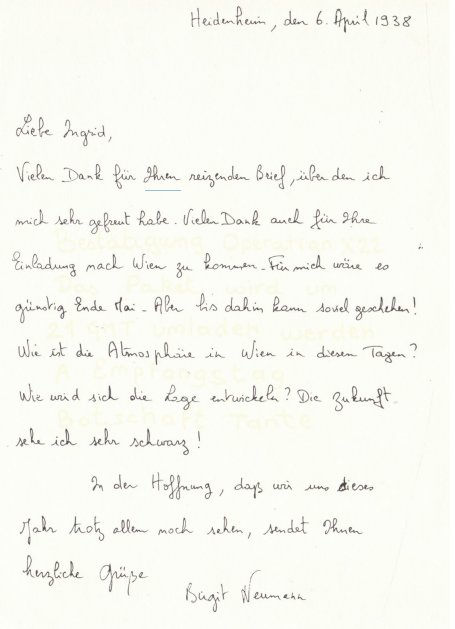 Heidenheim, den 6. April 1938
Liebe Ingrid,
Vielen Dank für Ihren reizenden Brief, über den ich
mich sehr gefreut habe. Vielen Dank auch für Ihre
Bestätigung Operation X22
Einladung nach Wien zu kommen. Für mich wäre es
Das Paket wird um
günstig Ende Mai. Aber bis dahin kann soviel geschehen!
21 GMT umladen werden
Wie ist die Atmosphäre in Wien in diesen Tagen?
A Empfangstag
Wie wird sich die Lage entwickeln? Die Zukunft
Botschaft Tante
sehe ich sehr schwarz!
In der Hoffnung, daß wir uns dieses
Jahr trotz allem noch sehen, sendet Ihnen
herzliche Grüße
Birgit Neumann